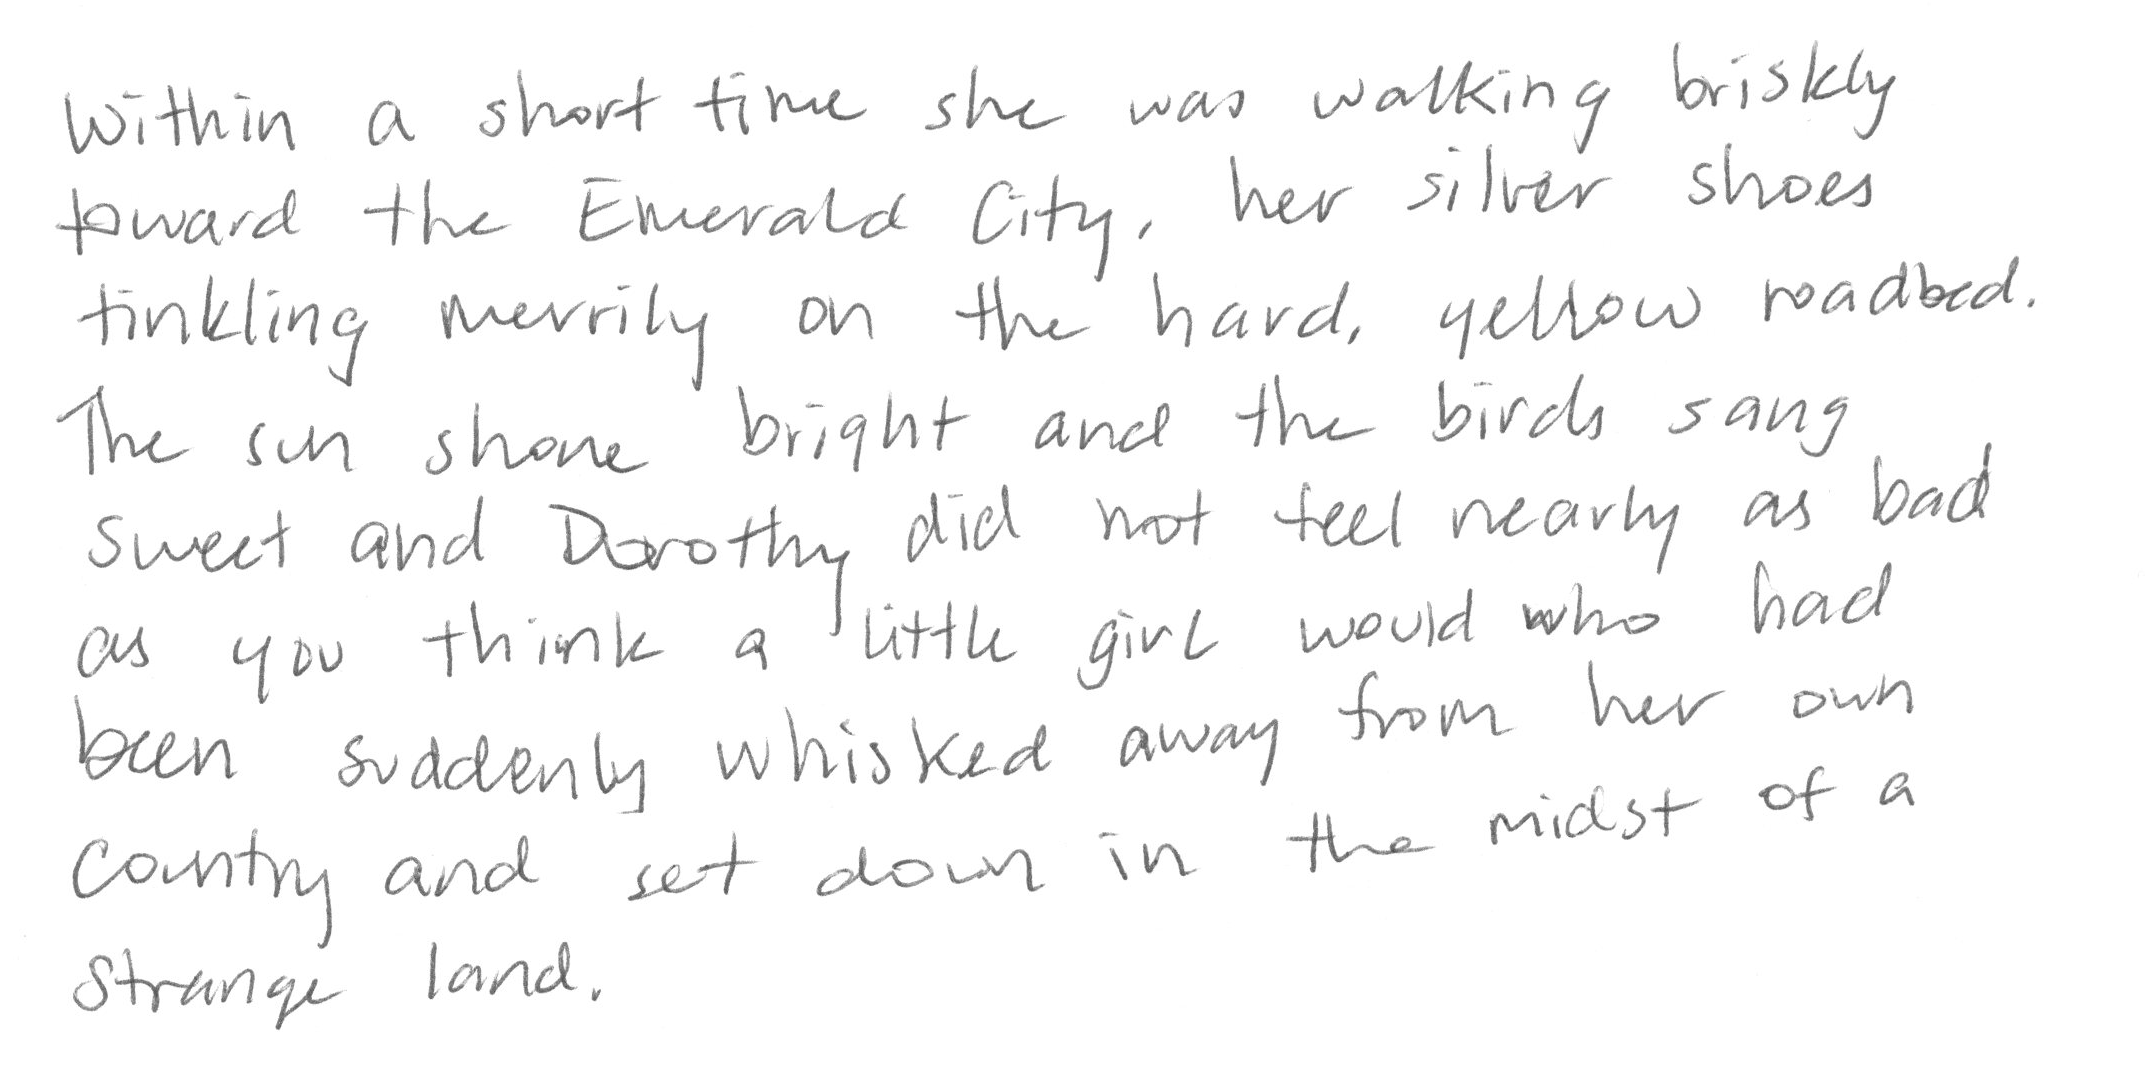 Within a short time she was walking briskly
toward the Emerald City, her silver shoes
tinkling merrily on the hard, yellow roadbed.
The sun shone bright and the birds sang
sweet and Dorothy did not feel nearly as bad
as you think a little girl would who had
been suddenly whisked away from her own
country and set down in the midst of a
strange land.